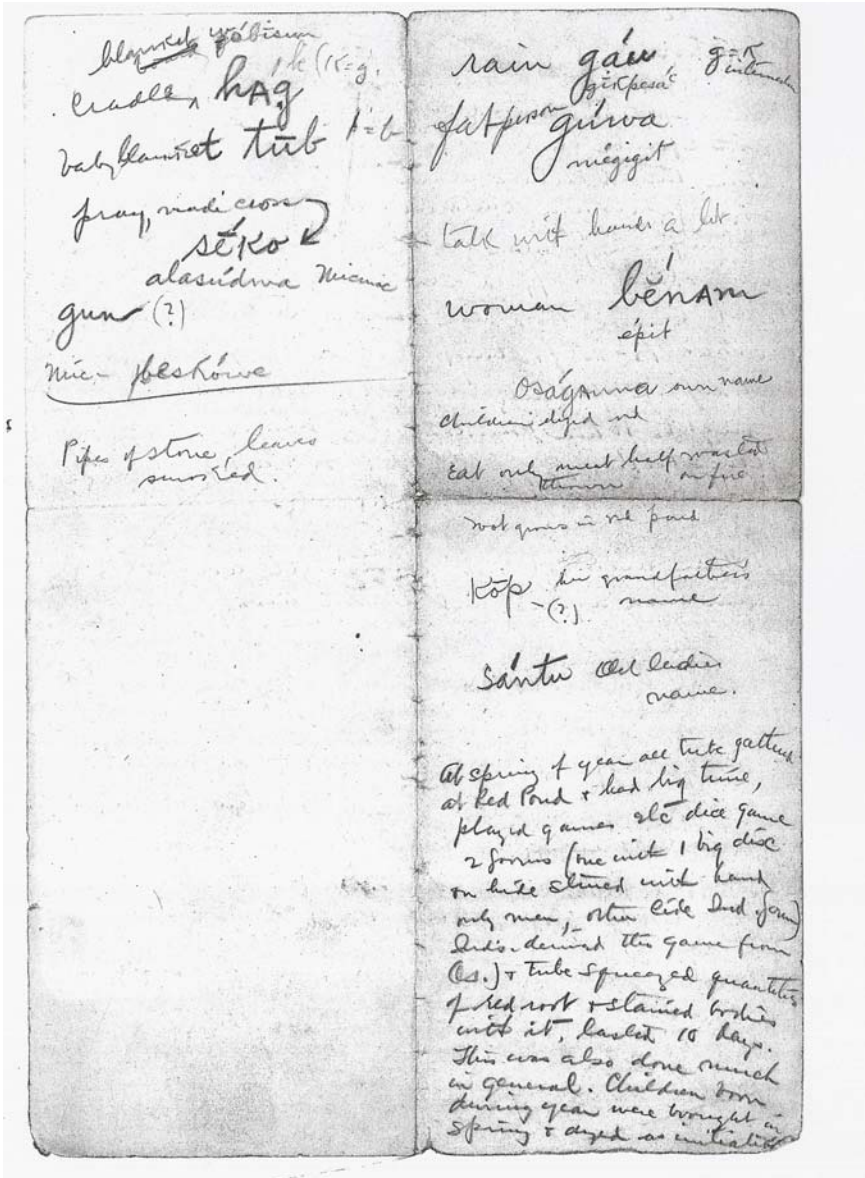 blanket
cradle, hᴀ́g k (k=g.
baby blanket tūb
pray, made cross
sēko
alasúdwa Micmac
gun (?)
Mic- peskówe
Pipes of stone, leaves
smoked.
rain gáu g=k
gikpesác
fat person gúwa
mégigit
talk with hands a lot.
woman bĕ́nᴀm
épit
Oságᴀnna own name
Children dyed red
Eat only meat half roasted
thrown on fire
root grows in red pond
Kōp her grandfathers
-(?) name
Sántu Old ladies
name.
At spring of year all tribe gathered
at Red Pond + had big time,
played games etc dice game
2 forms (one with 1 big dice
on hide
only men, other like Ind. form)
Ind's. derived this game from
Os.) + tribe squeezed quantities
of red root + stained bodies
with it, lasted 10 days.
This was also done much
in general. Children born
during year were brought in
Spring + dyed as initiation